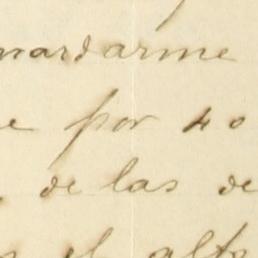 mardarme
e por 40
de las de
el alto